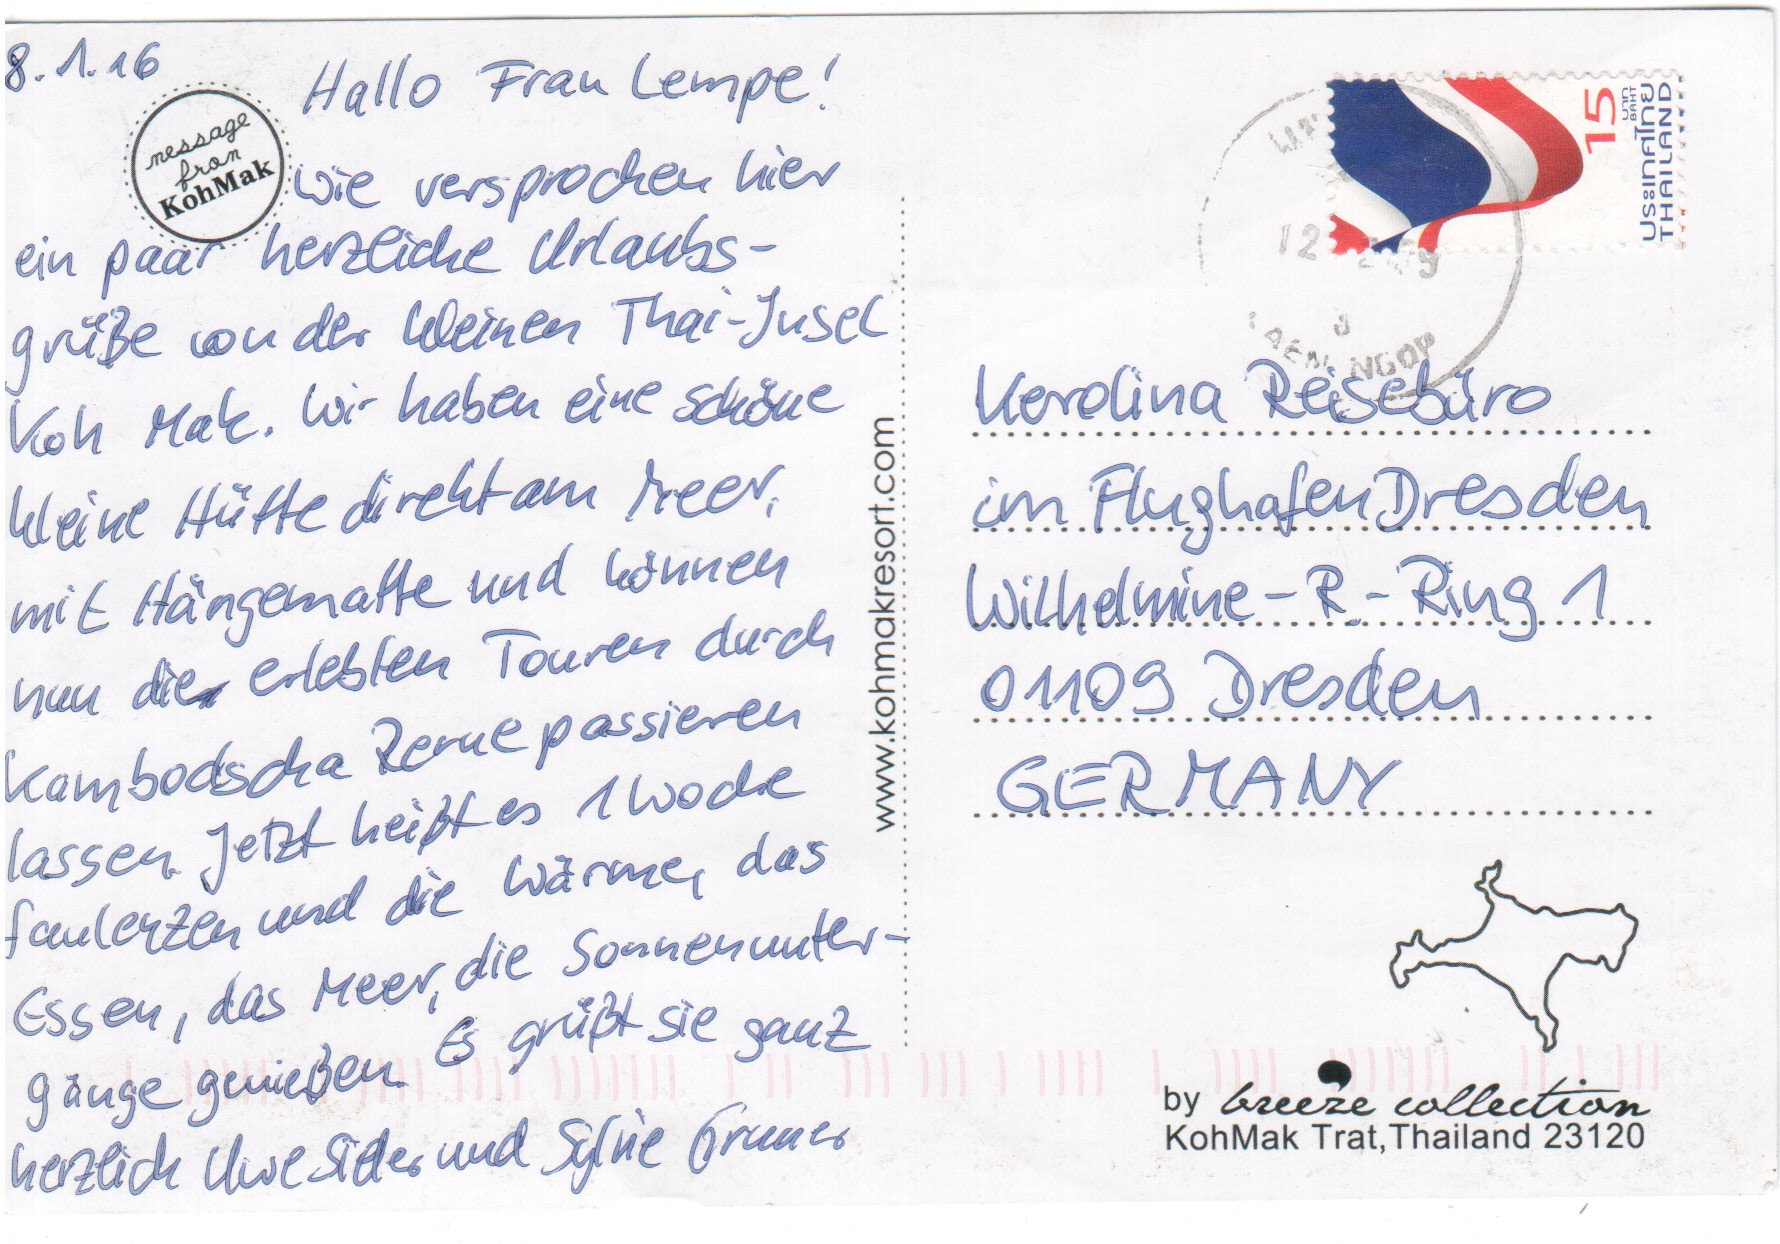 8.1.16
Hallo Frau Lempe!
message
from
KohMak
wie versprochen hier
ein paar herzliche Urlaubs-
grüße von der kleinen Thai-Insel
Koh Mak. Wir haben eine schöne
kleine Hütte direkt am Meer,
mit Hängematte und können
nun die erlebten Touren durch
Kambodscha Revue passieren
lassen. Jetzt heißt es 1 Woche
faulenzen und die Wärme, das
Essen, das Meer, die Sonnenunter-
gänge genießen. Es grüßt sie ganz
herzlich Uwe und Sylvie
www.kohmakresort.com
15
บาท
BAHT
ประเทศไทย
THAILAND
12
NGOP
Karolina Reisebüro
im Flughafen Dresden
Wilhelmine-R.-Ring 1
01109 Dresden
GERMANY
by breeze collection
KohMak Trat, Thailand 23120